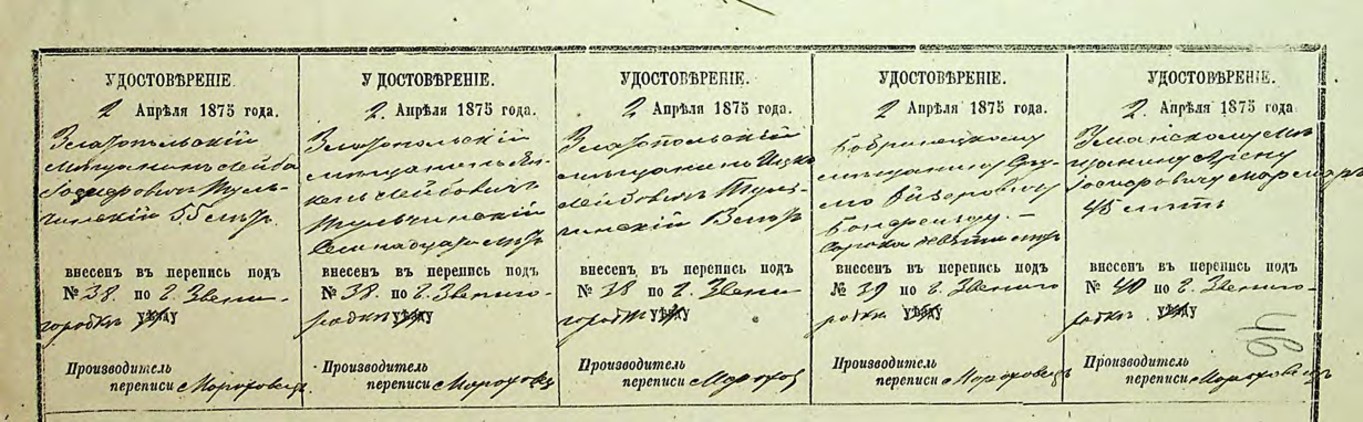 УДОСТОВѢРЕНІЕ.
2 Апрѣля 1875 года.
Златопольскій
мѣщанинъ Лейба
Туль-
чинскій 55 лѣтъ
внесенъ въ перепись подъ
№ 38. по г. Звени-
городкѣ уѣзду
Производитель
переписи Мороховецъ
УДОСТОВѢРЕНІЕ.
2. Апрѣля 1875 года.
Златопольскій
мѣщанинъ Ян-
кель Лейбовичъ
Тульчинскій
Семнадцать лѣтъ
внесенъ въ перепись подъ
№ 38. по г. Звениго-
родкѣ уѣзду
Производитель
переписи Мороховец
УДОСТОВѢРЕНІЕ.
2 Апрѣля 1875 года.
Златопольскій
мѣщанинъ Ицко
Лейбовичъ Туль-
чинскій 8 лѣтъ
внесенъ въ перепись подъ
№ 38 по г. Звени
городкѣ уѣзду
Производитель
переписи Морохов
УДОСТОВѢРЕНІЕ.
2 Апрѣля 1875 года.
Бобринецкому
мѣщанину Сру-
лю
Сорока девяти лѣтъ
внесенъ въ перепись подъ
№ 39 по г. Звениго
родкѣ уѣзду
Производитель
переписи Мороховецъ
УДОСТОВѢРЕНІЕ.
2. Апрѣля 1875 года
Уманскому мѣ-
щанину Арону
45 лѣтъ
внесенъ въ перепись подъ
№ 40 по г. Звениго-
родкѣ уѣзду
Производитель
переписи Мороховецъ